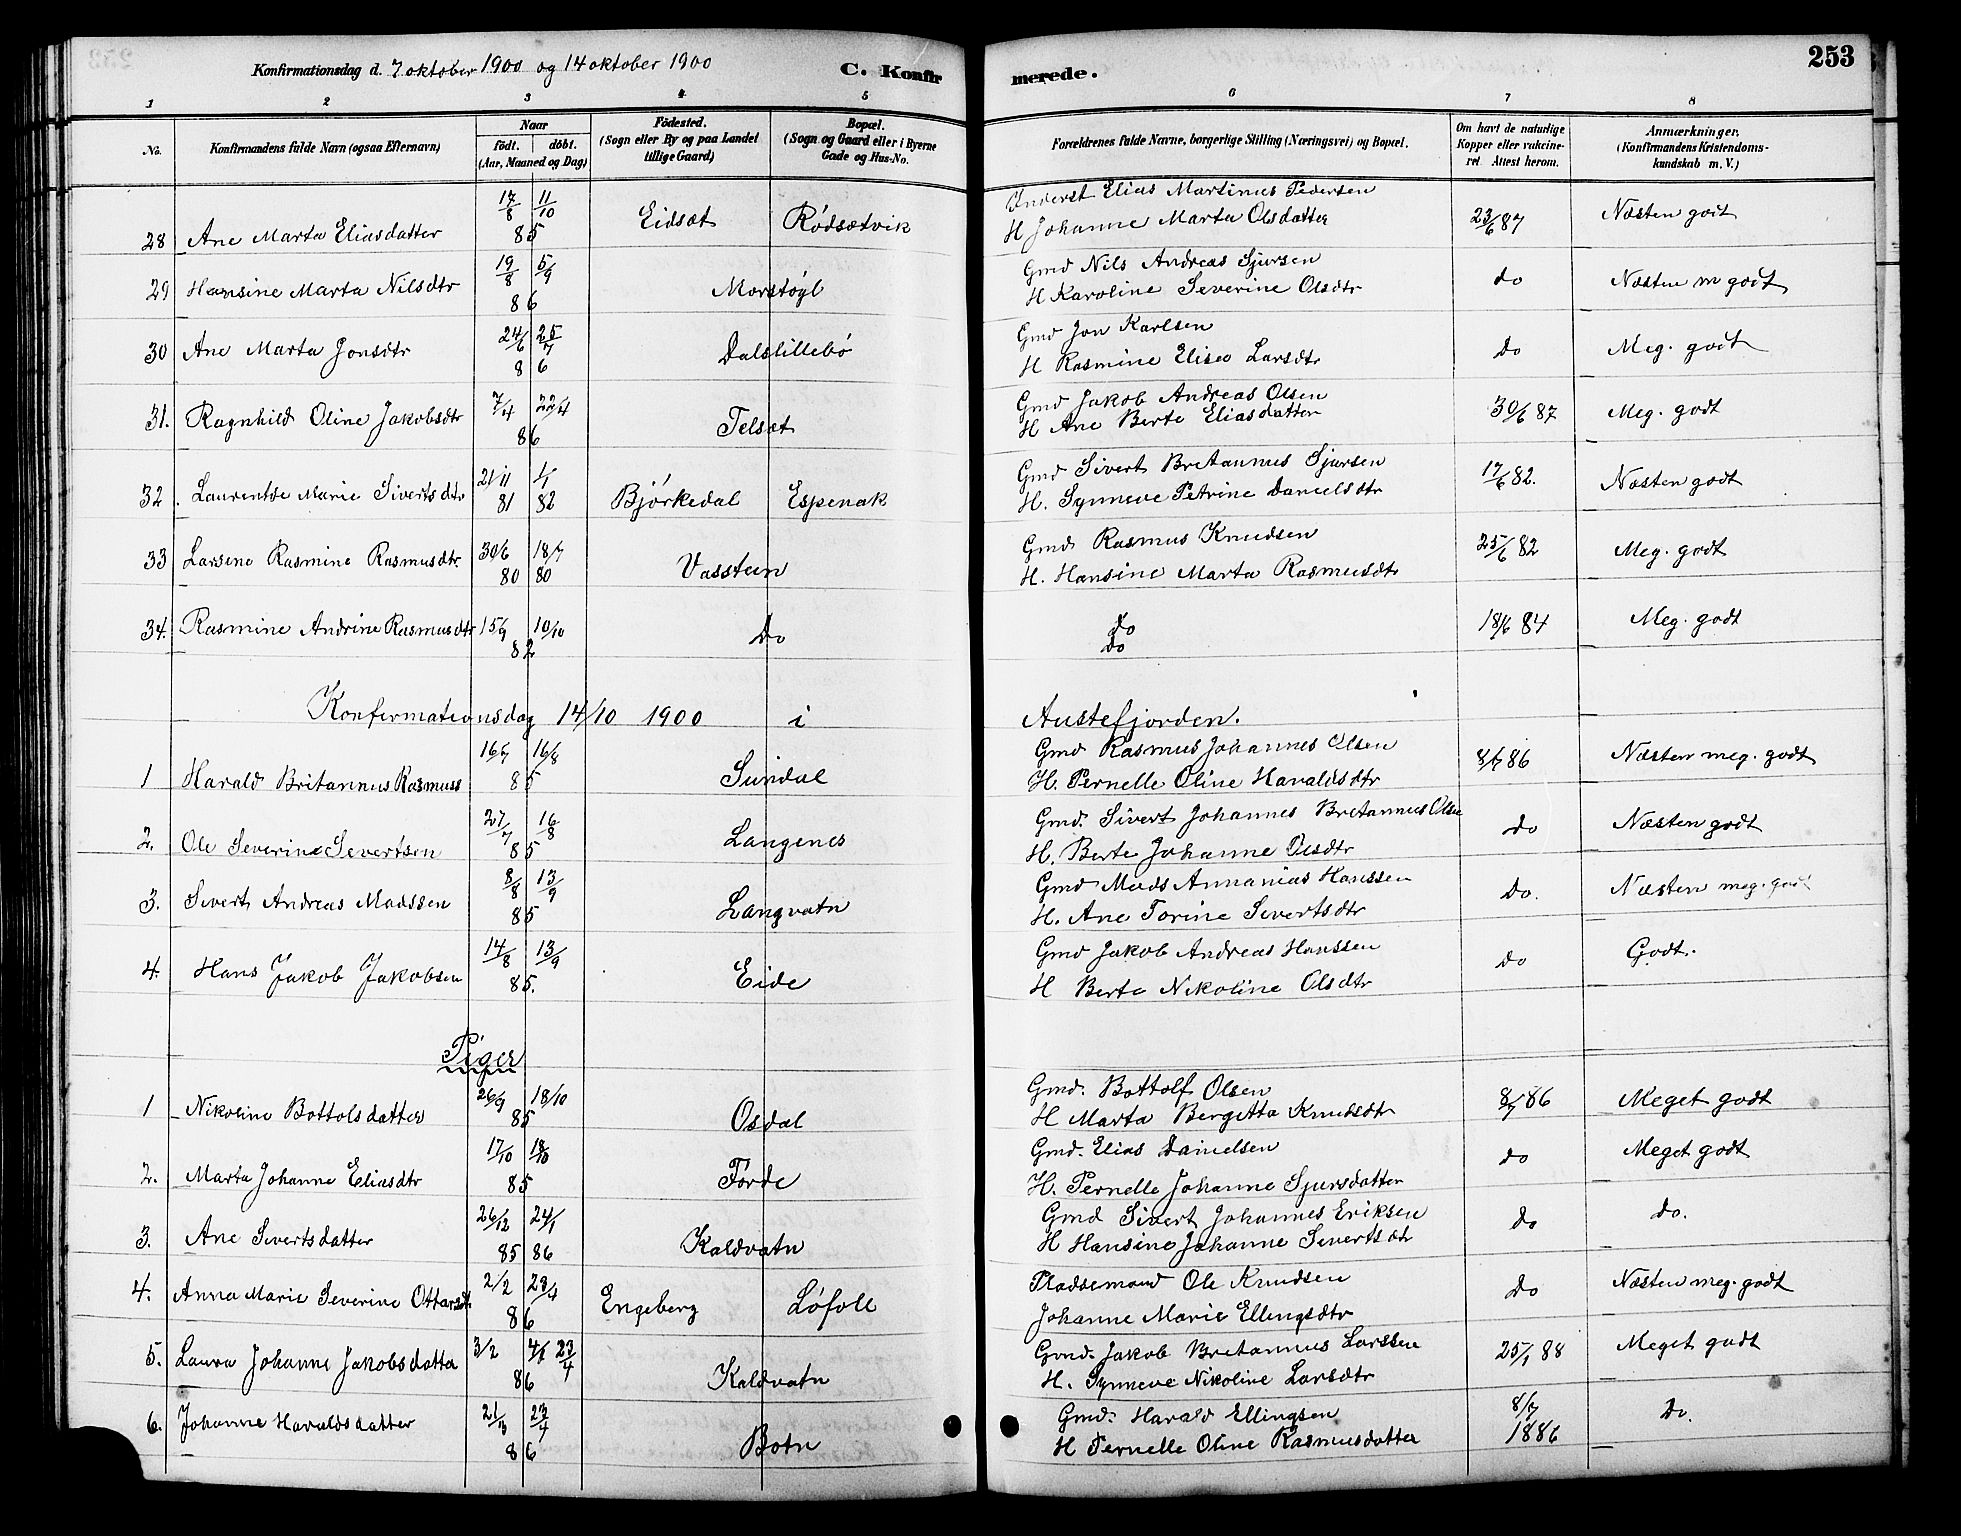 Konfirmationsdag d. 7 oktober 1900 og 14 oktober 1900 C. Konfirmerede. 253
1 2 3 4 5 6 7 8
No. Konfirmandens fulde Navn (ogsaa Efternavn) Naar födt. döbt. (Aar, Maaned og Dag) Födested. (Sogn eller By og paa Landet tillige Gaard) Bopæl. (Sogn og Gaard eller i Byerne Gade og Hus-No. Forældrenes fulde Navne, borgerlige Stilling (Næringsvei) og Bopæl. Om havt de naturlige Kopper eller vakcineret. Attest herom. Anmærkninger. (Konfirmandens Kristendomskundskab m. V.)
28 Ane Marta Eliasdatter 17/8 11/10 85 Eidsæt Rødsætvik Inderst Elias Martinus Pedersen
H Johanne Marta Olsdatter 23/6 87 Næsten godt
29 Hansine Marta Nilsdtr 19/8 5/9 86 Morstøyl Gmd Nils Andreas Sjursen
H Karoline Severine Olsdtr do Næsten m godt
30 Ane Marta Jonsdtr 24/6 25/7 86 Dalslillebø Gmd Jon Karlsen
H Rasmine Elisea Larsdtr do Meg. godt
31. Ragnhild Oline Jakobsdtr 7/4 22/4 86 Telsæt Gmd Jakob Andreas Olsen
H Ane Berte Eliasdatter 30/6 87 Meg. godt
32. Laurentse Marie Sivertsdtr 21/11 81 1/1 82 Bjórkedal Espenak Gmd Sivert Bretannus Sjursen
H. Synneve Petrine Danielsdtr 17/6 82. Næsten godt
33 Larsene Rasmine Rasmusdtr. 30/6 80 18/7 80 Vasstun Gmd Rasmus Knudsen
H. Hansine Marta Rasmusdtr 25/6 82 Meg. godt
34. Rasmine Andrine Rasmusdtr 15/9 10/10 82 Do do
do 18/6 84 Meg. godt
Konfermationsdag 14/10 1900 i Austefjorden.
1 Harald Britannus Rasmuss 16/7 16/8 85 Sundal Gmd Rasmus Johannes Olsen
H. Pernelle Oline Haraldsdtr 8/7 86 Næsten meg. godt
2. Ole Severin Severtsen 27/7 16/8 85 Langenes Gmd. Sivert Johannes Bretannus Olsen
H. Berte Johanne Olsdtr do Næsten godt
3. Sivert Andreas Madssen 8/8 13/9 85 Langvatn Gmd Mads Annanias Hanssen
H. Ane Torine Severtsdtr Do. Næsten meg. godt
4. Hans Jakob Jakobsen 14/8 13/9 85. Eide Gmd Jakob Andreas Hanssen
H Berte Nikoline Olsdtr do Godt.
Piger
1 Nikoline Bottolsdatter 26/9 18/10 85 Osdal Gmd. Bottolf Olsen
H Marta Bergitta Knudsdtr 8/7 86 Meget godt
2. Marta Johanne Eliasdtr 17/10 18/10 85 Førde Gmd. Elias Danielsen
H. Pernelle Johanne Sjursdatter do Meget godt
3. Ane Sivertsdatter 26/12 85 24/1 86 Kaldvatn Gmd Sivert Johannes Eriksen
H Hansine Johanne Severtsdtr do do.
4. Anna Marie Severine Ottarsdtr 2/2 23/4 86 Engeberg Løfoll Pladsemand Ole Knudsen
Johanne Marie Ellingsdtr do Næsten meg. godt
5. Laura Johanne Jakobsdatter 3/2 23/4 86 Kaldvatn Gmd. Jakob Bretannus Larssen
H. Synneve Nikoline Larsdtr 25/1 88 Meget godt
6. Johanne Haraldsdatter 21/3 23/4 86 Botn Gmd. Harald Ellingsen
H Pernelle Oline Rasmusdatter 8/7 1886 Do.